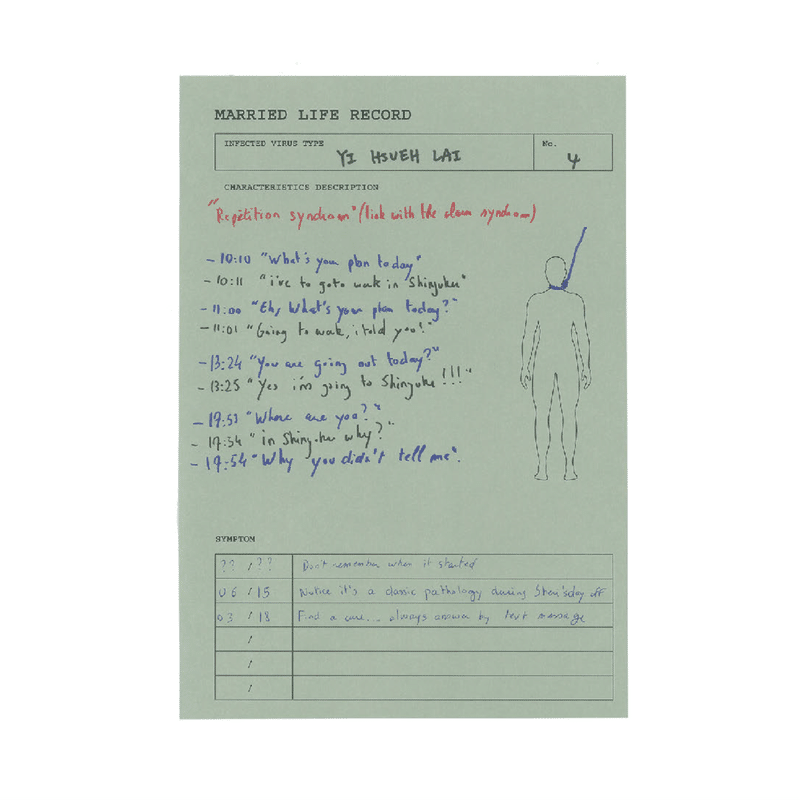 MARRIED LIFE RECORD
INFECTED VIRUS TYPE YI HSUEH LAI No. 4
CHARACTERISTICS DESCRIPTION
"Repetition syndrom" (link with the clown syndrom)
- 10:10 "What's your plan today"
- 10:11 "i've to goto work in Shinjuku"
- 11:00 "Eh, What's your plan today?"
- 11:01 "Going to work, i told you!"
- 13:24 "You are going out today?"
- 13:25 "Yes i'm going to Shinjuku!!!"
- 17:53 "Where are you?"
- 17:54 "in Shinjuku why?"
- 17:54 "Why you didn't tell me".
SYMPTOM
?? / ?? Don't remember when it started
06 / 15 Notice it's a classic pathology during day off
03 / 18 Find a cure... always answer by text message
/
/
/